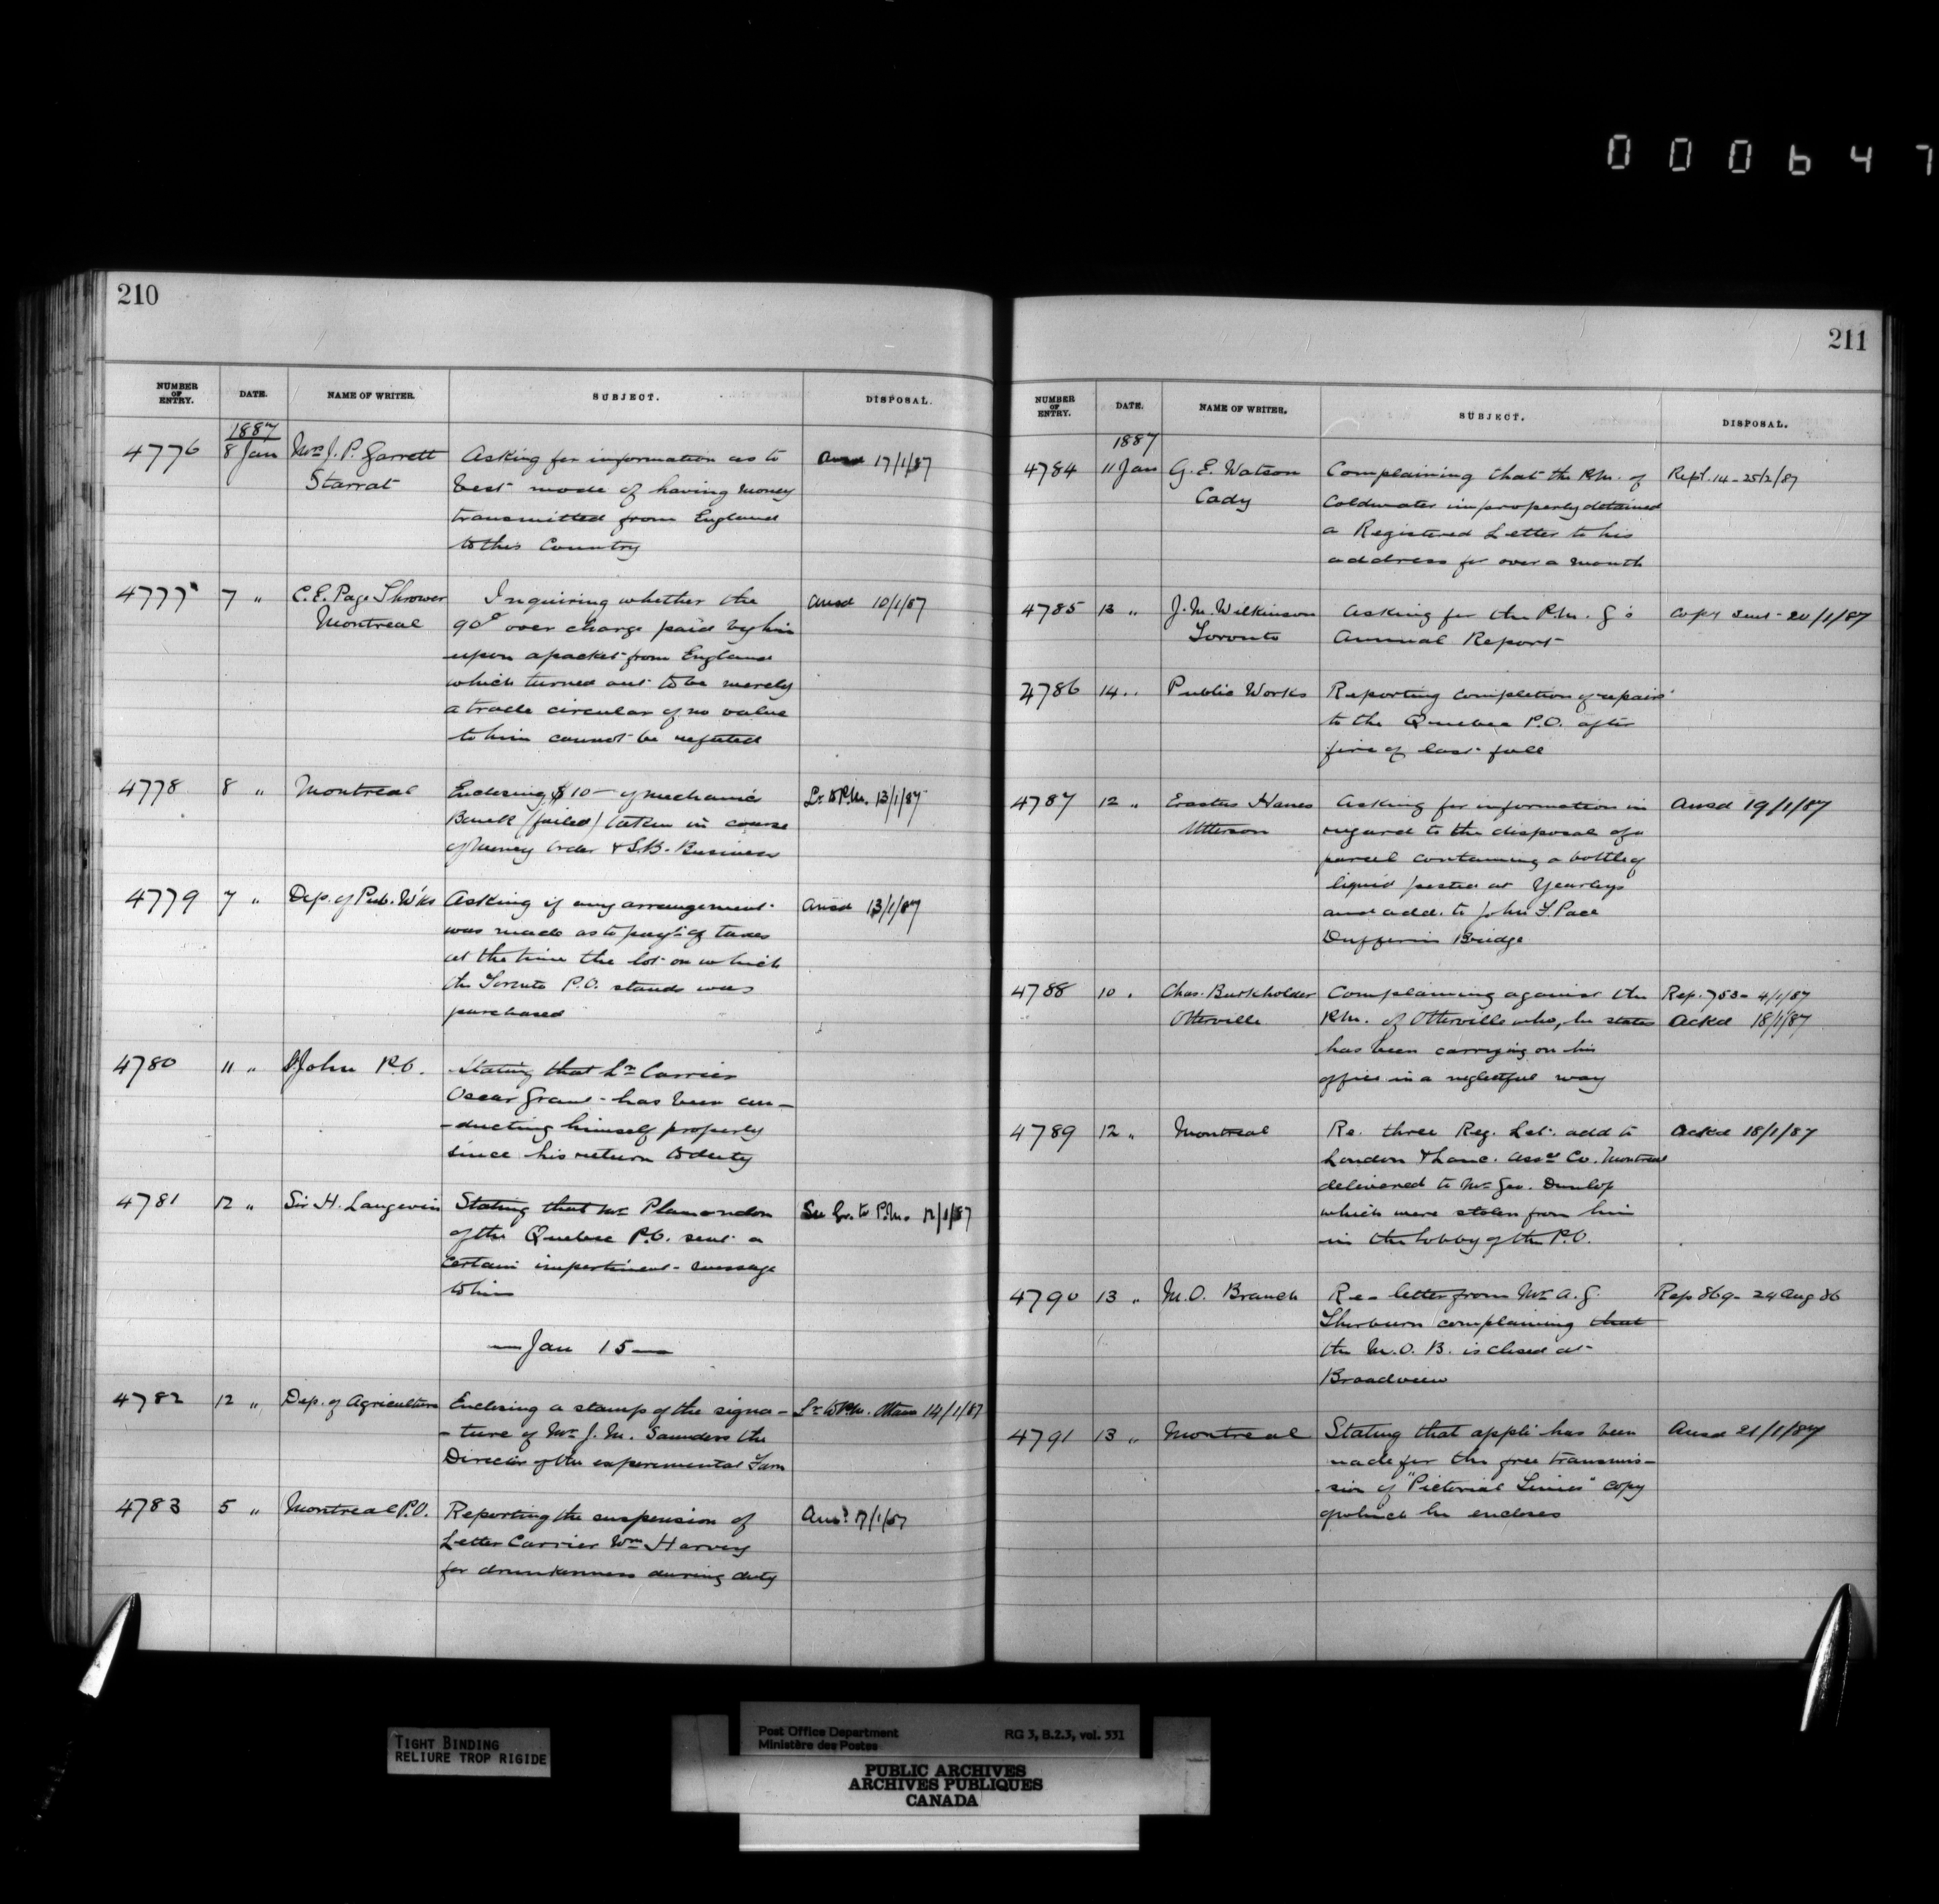 000647
210
NUMBER OF ENTRY. DATE. NAME OF WRITER. SUBJECT. DISPOSAL.
1887
4776 8 Jan Mrs J. P. Garrett Asking for information as to Ansd 17/1/87
Starrat best mode of having money
transmitted from England
to this Country
4777 7 " C. E. Page Thrower Inquiring whether the Ansd 10/1/87
Montreal 90c over charge paid by him
upon a packet from England
which turned out to be merely
a trade circular of no value
to him cannot be refunded
4778 8 " Montreal Enclosing $10 — of Mechanics Lr to P.M. 13/1/87
Bank (failed) taken in course
of Money Order & S.B. Business
4779 7 " Dep. of Pub. W'ks Asking if any arrangement Ansd 13/1/87
was made as to payt of taxes
at the time the lot on which
the Toronto P.O. stands was
purchased
4780 11 " St John P.O. Stating that Lr Carrier
Oscar Grant has been con-
-ducting himself properly
since his return to duty
4781 12 " Sir H. Langevin Stating that Mr Plamondon to P.M. 12/1/87
of the Quebec P.O. sent a
certain impertinent message
to him
— Jan 15 —
4782 12 " Dep. of Agriculture Enclosing a stamp of the signa- Lr to P.M. Ottawa 14/1/87
-ture of Mr J. M. Saunders the
Director of the experimental Farm
4783 5 " Montreal P.O. Reporting the suspension of Ansd 17/1/87
Letter Carrier Wm Harvey
for drunkenness during duty
211
NUMBER OF ENTRY. DATE. NAME OF WRITER. SUBJECT. DISPOSAL.
1887
4784 11 Jan G. E. Watson Complaining that the P.M. of Rept. 14 - 25/2/87
Cady Coldwater improperly detained
a Registered Letter to his
address for over a month
4785 13 " J. M. Wilkinson Asking for the P.M.G's Copy sent 20/1/87
Toronto Annual Report
4786 14 " Public Works Reporting completion of repairs
to the Quebec P.O. after
fire of last fall
4787 12 " Erastus Hanes Asking for information in Ansd 19/1/87
Utterson regard to the disposal of a
parcel containing a bottle of
liquid posted at Yearleys
and add. to John F. Pace
Dufferin Bridge
4788 10 " Chas. Burkholder Complaining against the Rep. 753 - 4/1/87
Otterville P.M. of Otterville who, he states Ackd 18/1/87
has been carrying on his
office in a neglectful way
4789 12 " Montreal Re. three Reg. Let. add to Ackd 18/1/87
London & Lanc. Assce Co. Montreal
delivered to Mr Geo. Dunlop
which were stolen from him
in the lobby of the P.O.
4790 13 " M.O. Branch Re - letter from Mr A. G. Rep 869 - 24 Aug 86
Thorburn complaining that
the M.O.B. is closed at
Broadview
4791 13 " Montreal Stating that appln has been Ansd 21/1/87
made for the free transmis-
-sion of "Pictorial Times" copy
of which he encloses
TIGHT BINDING
RELIURE TROP RIGIDE
Post Office Department RG 3, B.2.3, vol. 331
Ministère des Postes
PUBLIC ARCHIVES
ARCHIVES PUBLIQUES
CANADA